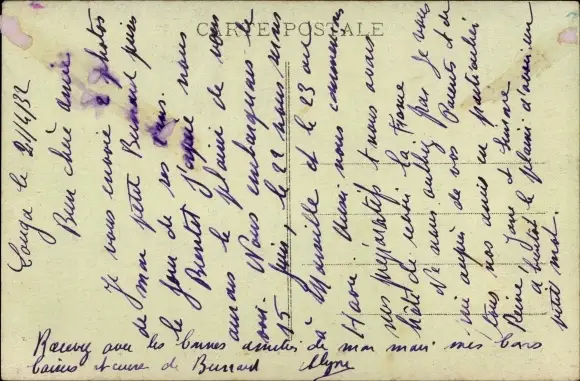 CARTE POSTALE
Conga le 21/4/32
Bien chère amie
Je vous envoie 2 photos
de mon petit Bernard pris
le jour de ses ans.
Bientôt j'espère nous
aurons le plaisir de vous
voir. Nous embarquons le
15 juin, le 22 nous nous
à Marseille et le 23 au
Havre. Aussi nous commençons
nos préparatifs et nous avons
hâte de revoir la France
Ne nous oubliez pas je vous
prie auprès de vos Parents et de
tous nos amis en particulier
René, Jane et Simone
à bientôt le plaisir d'avoir un
petit mot.
Recevez avec les bonnes amitiés de mon mari mes bons
baisers et ceux de Bernard